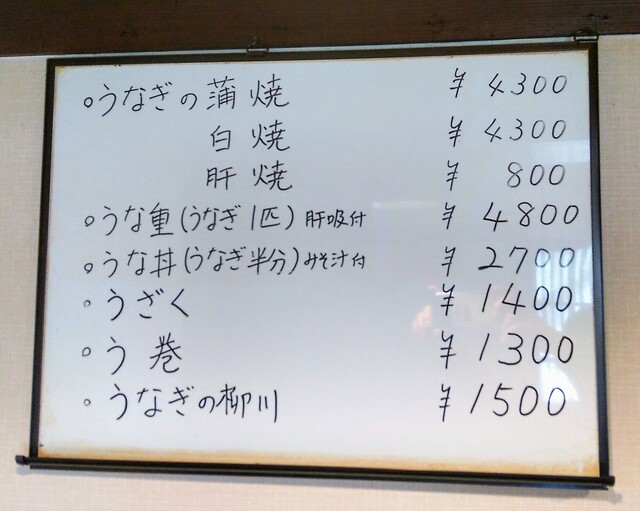 ○うなぎの蒲焼 ¥4300
白焼 ¥4300
肝焼 ¥800
○うな重(うなぎ1匹)肝吸付 ¥4800
○うな丼(うなぎ半分)みそ汁付 ¥2700
○うざく ¥1400
○う巻 ¥1300
○うなぎの柳川 ¥1500